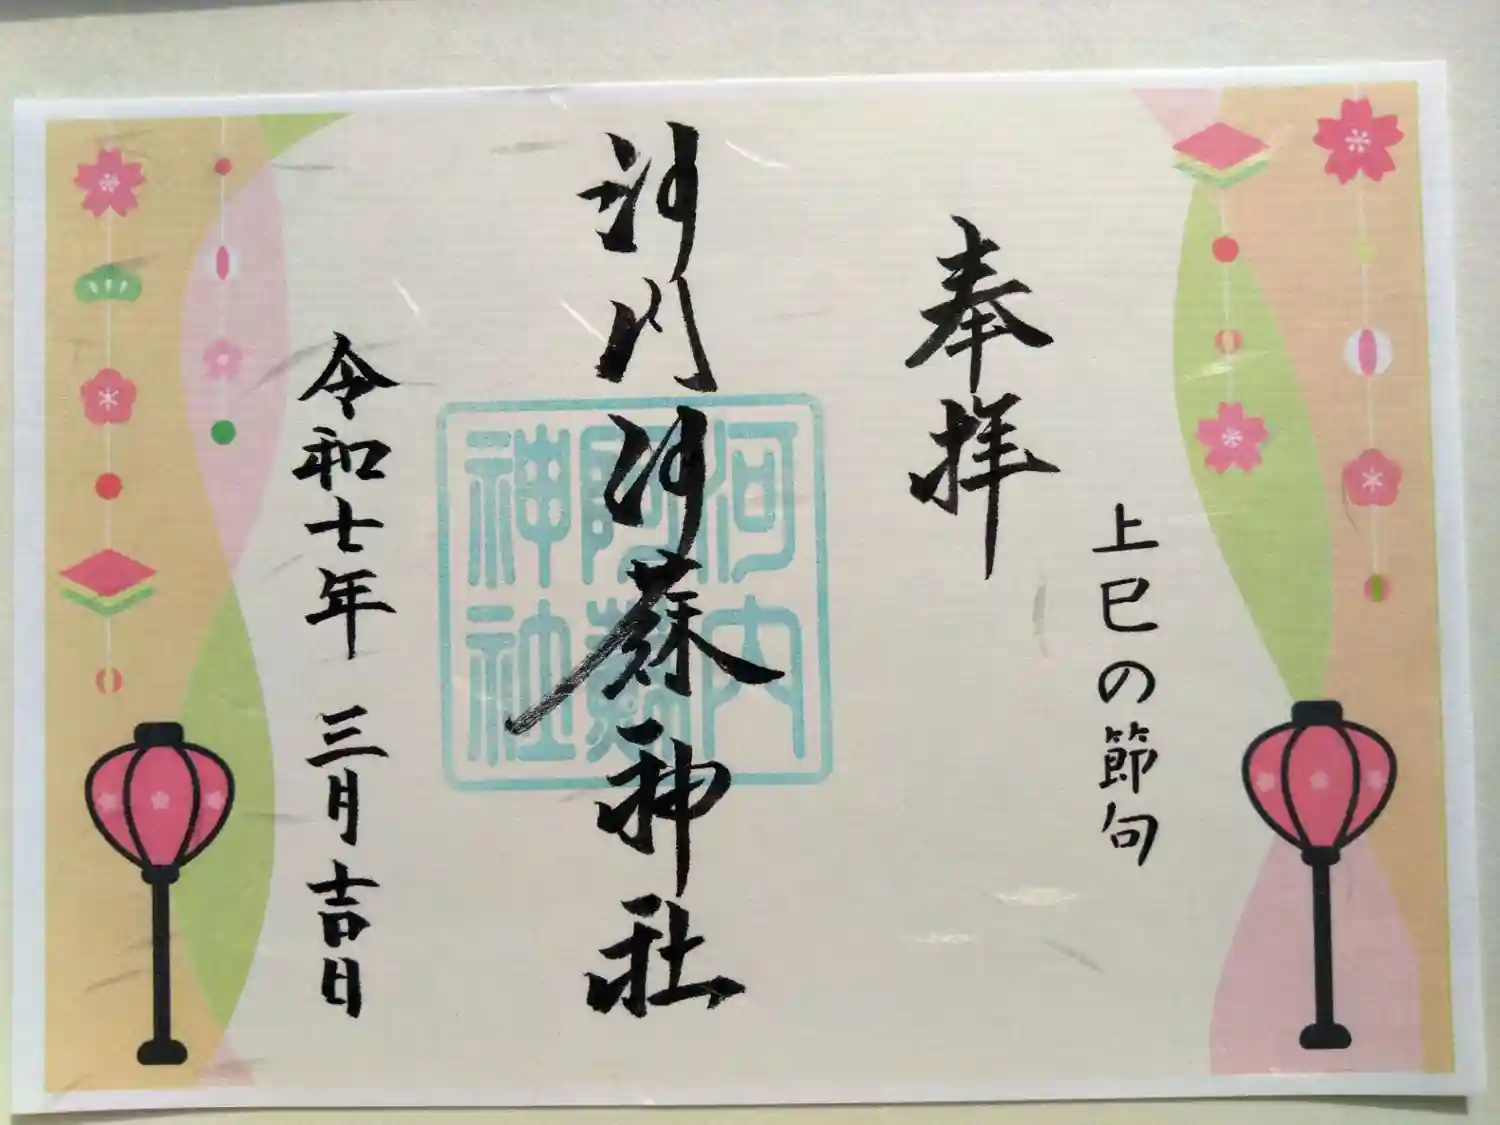 上巳の節句
奉拝
河内阿蘇神社
河内
阿蘇
神社
令和七年 三月吉日